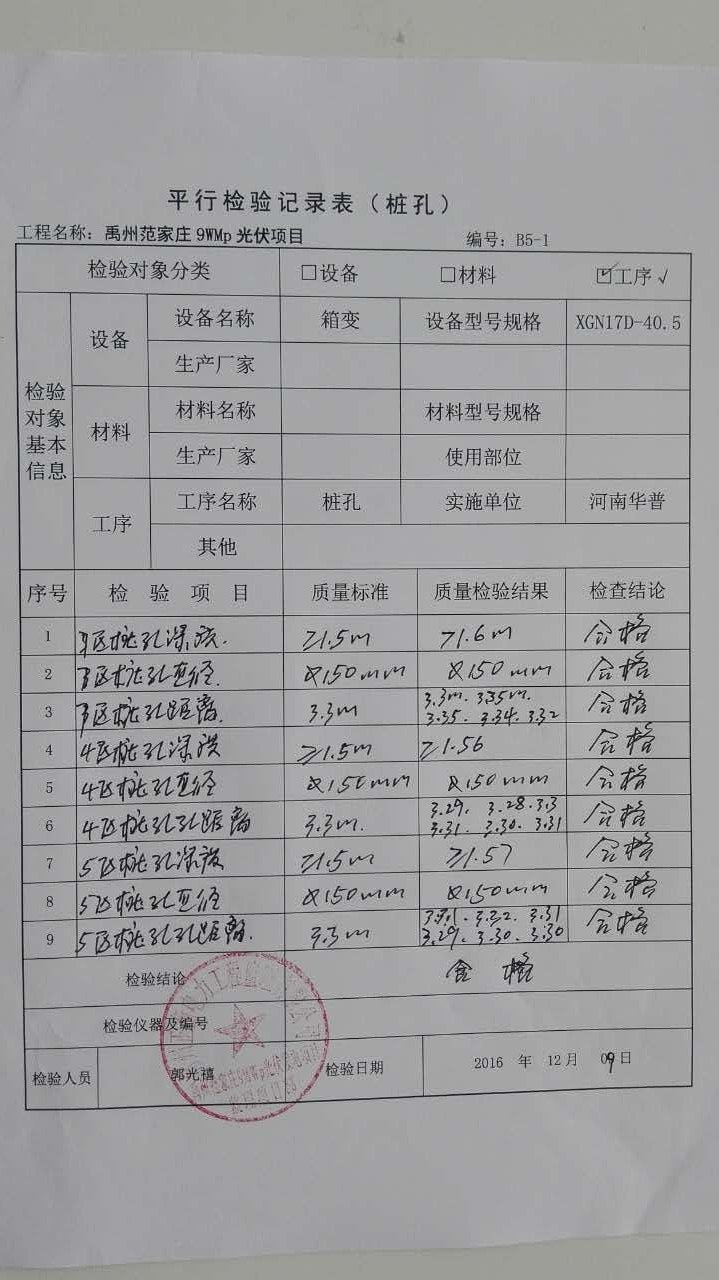 平行检验记录表（桩孔）
工程名称：禹州范家庄9WMp光伏项目 编号：B5-1
检验对象分类 □设备 □材料 ☑工序√
检验对象基本信息
设备 设备名称 箱变 设备型号规格 XGN17D-40.5
生产厂家
材料 材料名称 材料型号规格
生产厂家 使用部位
工序 工序名称 桩孔 实施单位 河南华普
其他
序号 检验项目 质量标准 质量检验结果 检查结论
1 区桩孔深度. ≥1.5m >1.6m 合格
2 3区桩孔直径. 150mm 150mm 合格
3 3区桩孔距离. 3.3m 3.3m. 3.35m. 3.35. 3.34. 3.32 合格
4 4区桩孔深度 ≥1.5m ≥1.56 合格
5 4区桩孔直径 150mm 150mm 合格
6 4区桩孔孔距离 3.3m. 3.29. 3.28. 3.3 3.31. 3.30. 3.31 合格
7 5区桩孔深度 ≥1.5m ≥1.57 合格
8 5区桩孔直径 150mm 150mm 合格
9 5区桩孔孔距离. 3.3m 3.32. 3.31 3.29. 3.30. 3.30 合格
检验结论 合格
检验仪器及编号
检验人员 郭光禧 检验日期 2016 年 12月 09日